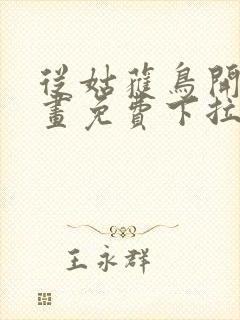 從姑蘿鳥開
畫免費下拉
王永群